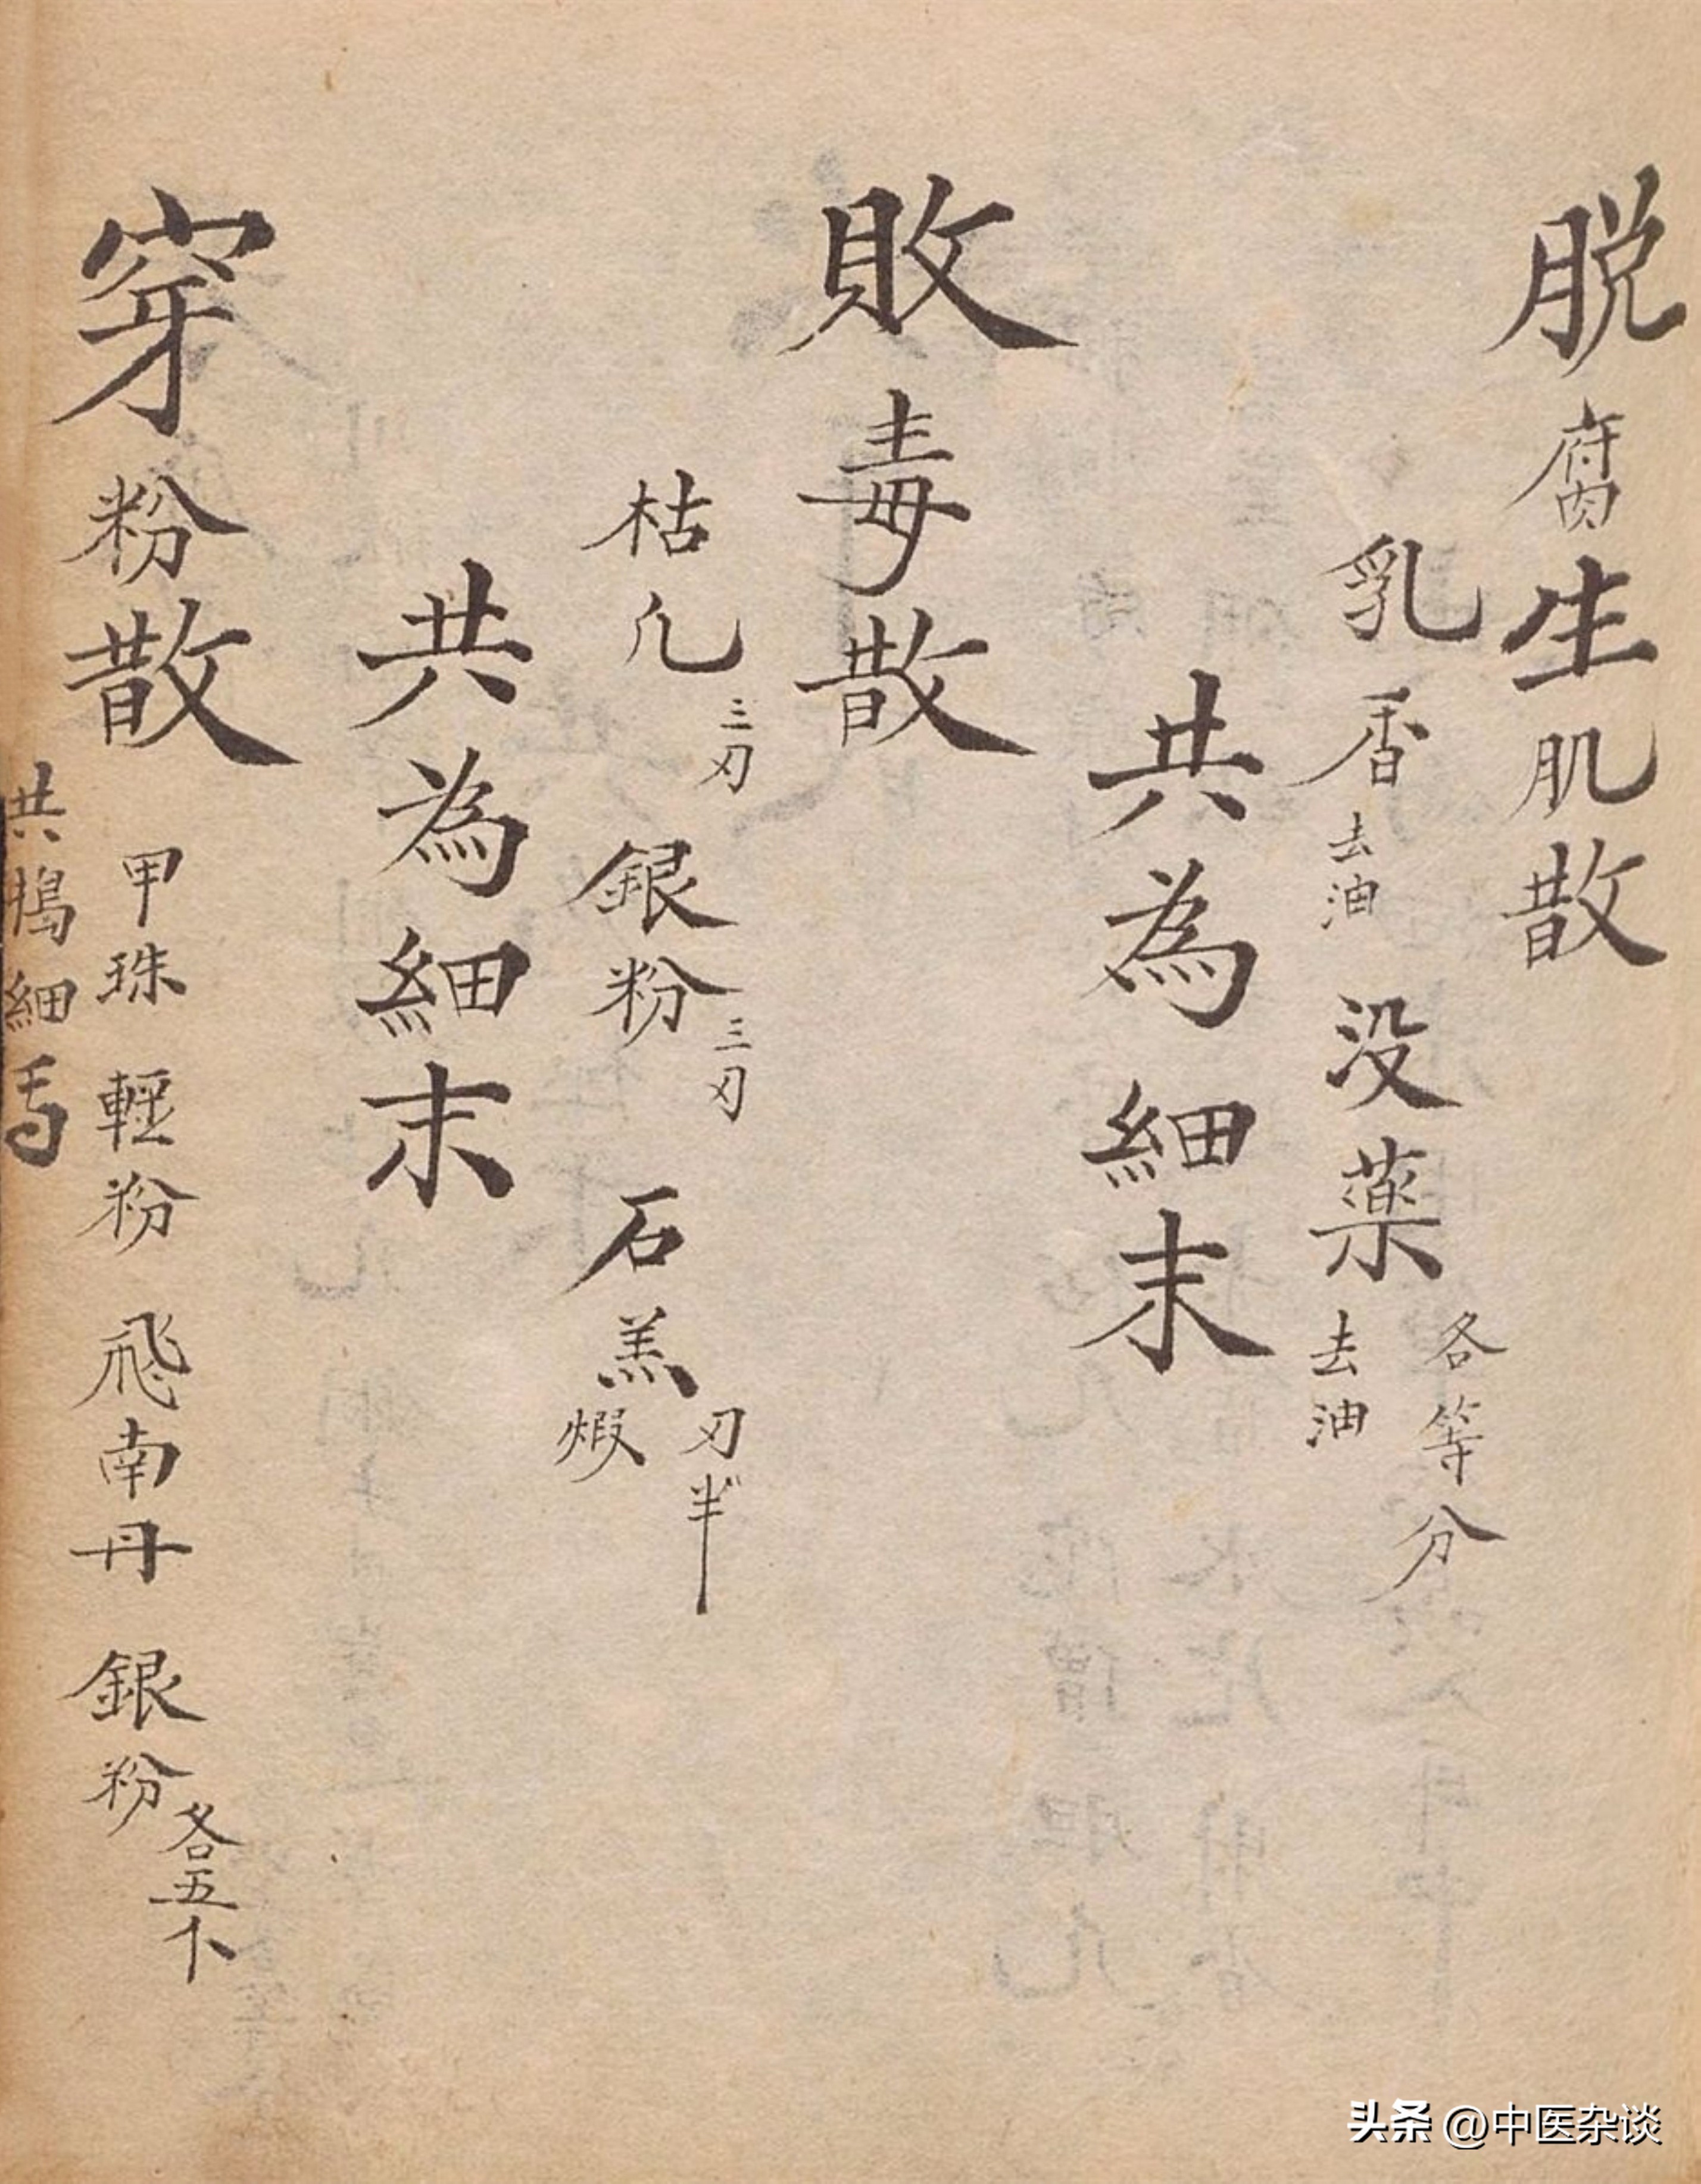 脱腐生肌散
乳香去油 没薬去油 各等分
共為細末
敗毒散
枯凣三刃 銀粉三刃 石羔煆 刃半
共為細末
穿粉散 甲珠 輕粉 飛南丹 銀粉各五卜
共搗細
头条 @中医杂谈